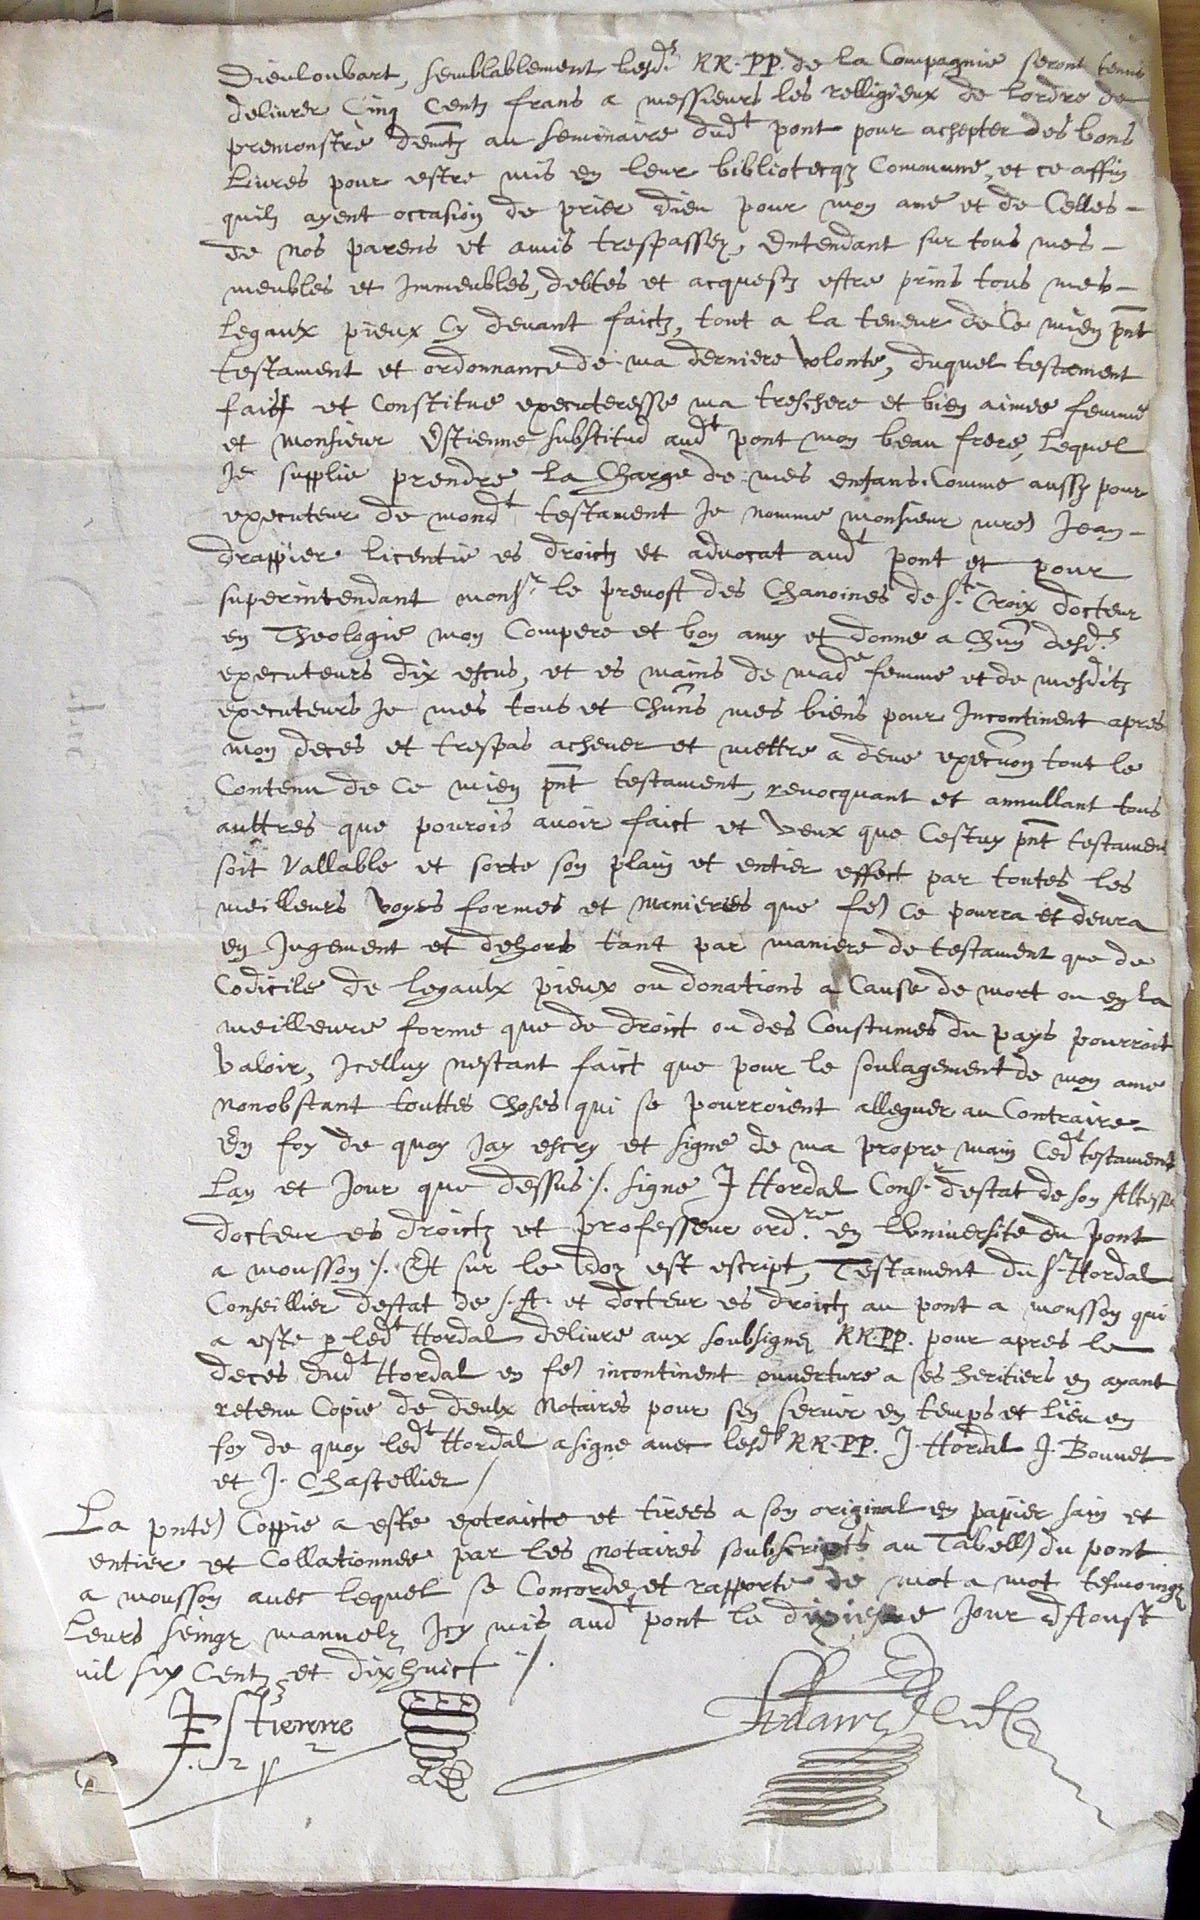 Dieuloubart, semblablement lesd.s RR. PP. de la Compagnie seront tenus
delivrer Cinq Centz frans a messieurs les relligieux de lordre de
premonstré demtz au seminaire dudt pont pour achepter des bons
Livres pour estre mis en leur bibliotecqz Commune, et ce affin
quilz ayent occasion de prier Dieu pour mon ame et de Celles -
de nos parens et amis trespassez, Entendant sur tous mes -
meubles et immeubles, debtes et acquestz estre prins tous mes -
Legaulx pieux Cy devant faictz, tout a la teneur de Ce mien pnt
testament et ordonnance de ma derniere volonte, duquel testament
fais et Constitue executeresse ma treschere et bien aimée femme
et monsieur Estienne substitud audt pont mon beau frere, Lequel
Je supplie prendre la Charge de mes enfans. Comme aussy pour
executeur de mondt testament Je nomme monsieur mre Jean -
drappier licentie es droictz et advocat audt pont et pour
superintendant monsr. le prevost des Chanoines de ste. Croix docteur
en Theologie mon Compere et bon amy et donne a Chun desd.s
executeurs dix escus, et es mains de made femme et de mesditz
executeurs Je mes tous et Chuns mes biens pour Incontinent apres
mon deces et trespas achever et mettre a deue execuon tout le
Contenu de Ce mien pnt testament, revocquant et annullant tous
auttres que pourois avoir faict et veux que Cestuy pnt testament
soit vallable et sorte son plain et entier effect par toutes les
meilleurs voyes formes et manieres que fe Ce pourra et devra
en Jugement et dehors tant par maniere de testament que de
Codicile de legaulx pieux ou donations a Cause de mort ou en la
meilleure forme que de droict ou des Coustumes du pays pourroit
valoir, Icelluy nestant faict que pour le soulagement de mon ame
nonobstant touttes Choses qui se pourroient alleguer au Contraire -
En foy de quoy Jay escry et signé de ma propre main Cedt testament
Lan et Jour que dessus /. signe J Hordal Consr. destat de son Altesse
docteur es droictz et professeur ord.re en Luniversite du Pont
a mousson /. Et sur le doz est escript, Testament du sr. Hordal
Conseillier destat de s. A. et docteur es droictz au pont a mousson qui
a este p ledt Hordal delivré aux soubsignez RR. PP. pour apres le
deces dudt Hordal en fe incontinent ouverture a ses heritiers en ayant
retenu Copie de deulx Notaires pour sen servir en temps et Lieu en
foy de quoy ledt Hordal a signe avec lesd.s RR. PP. J. Hordal J. Bonnet
et J. Chastellier /
La pnte Coppie a este extraicte et tirees a son original en papier sain et
entier et Collationnée par les notaires soubscripts au Tabell du pont
a mousson avec lequel se Concorde et rapporte de mot a mot tesmoingz
Leurs seingz manuelz Icy mis audt pont le dixiesme Jour dAoust
mil six Centz et dixhuict /.
Estienne